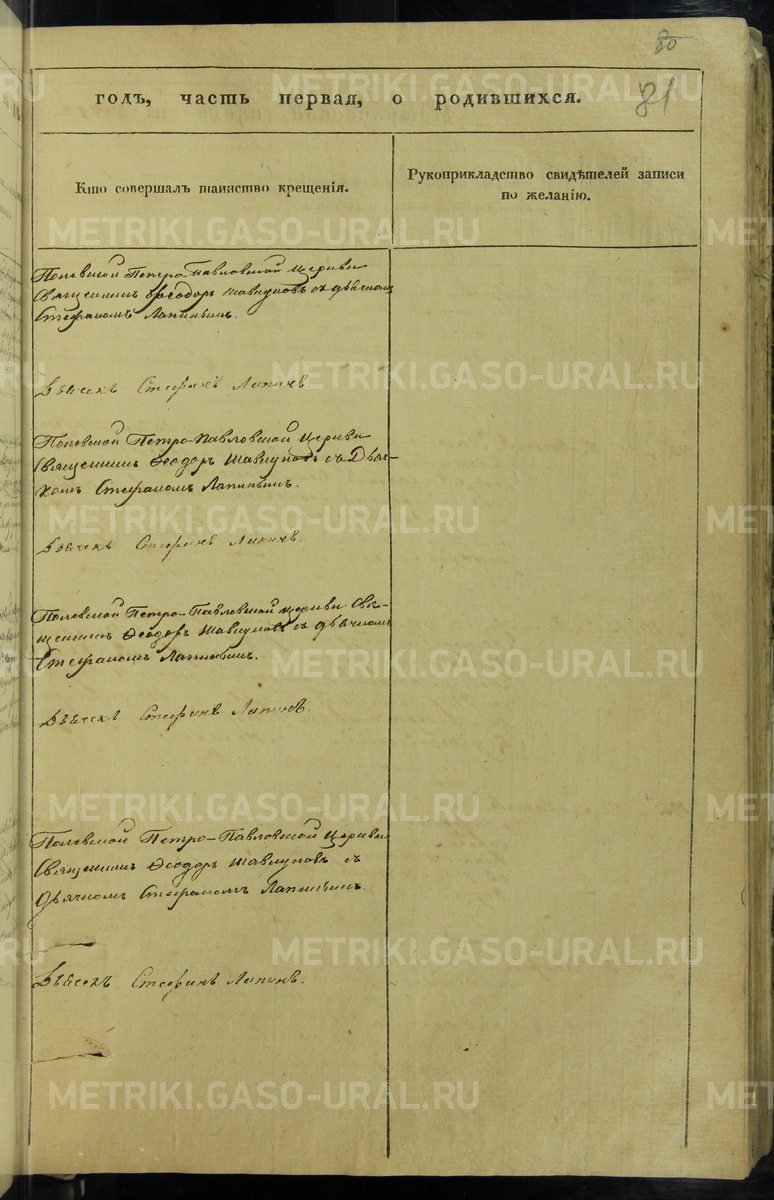 80
81
годъ, часть первая, о родившихся.
Кто совершалъ таинство крещенія.
Рукоприкладство свидѣтелей записи
по желанію.
Полевской Петро-Павловской Церкви
Священникъ Ѳеодоръ съ дьячкомъ
Стефаномъ Лапинымъ.
Дьячекъ Стефанъ Лапинъ
Полевской Петро-Павловской Церкви
Священникъ Ѳеодоръ съ Дьяч-
комъ Стефаномъ Лапинымъ.
Дьячекъ Стефанъ Лапинъ.
Полевской Петро-Павловской церкви Свя-
щенникъ Ѳеодоръ съ дьячкомъ
Стефаномъ Лапинымъ.
Дьячекъ Стефанъ Лапинъ.
Полевской Петро-Павловской Церкви
Священникъ Ѳеодоръ съ
дьячкомъ Стефаномъ Лапинымъ.
Дьячекъ Стефанъ Лапинъ.
METRIKI.GASO-URAL.RU